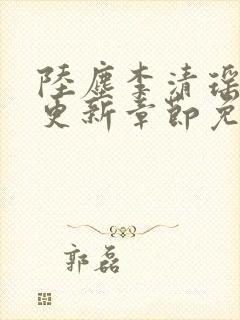 陸塵李清瑶
更新章節免
郭磊